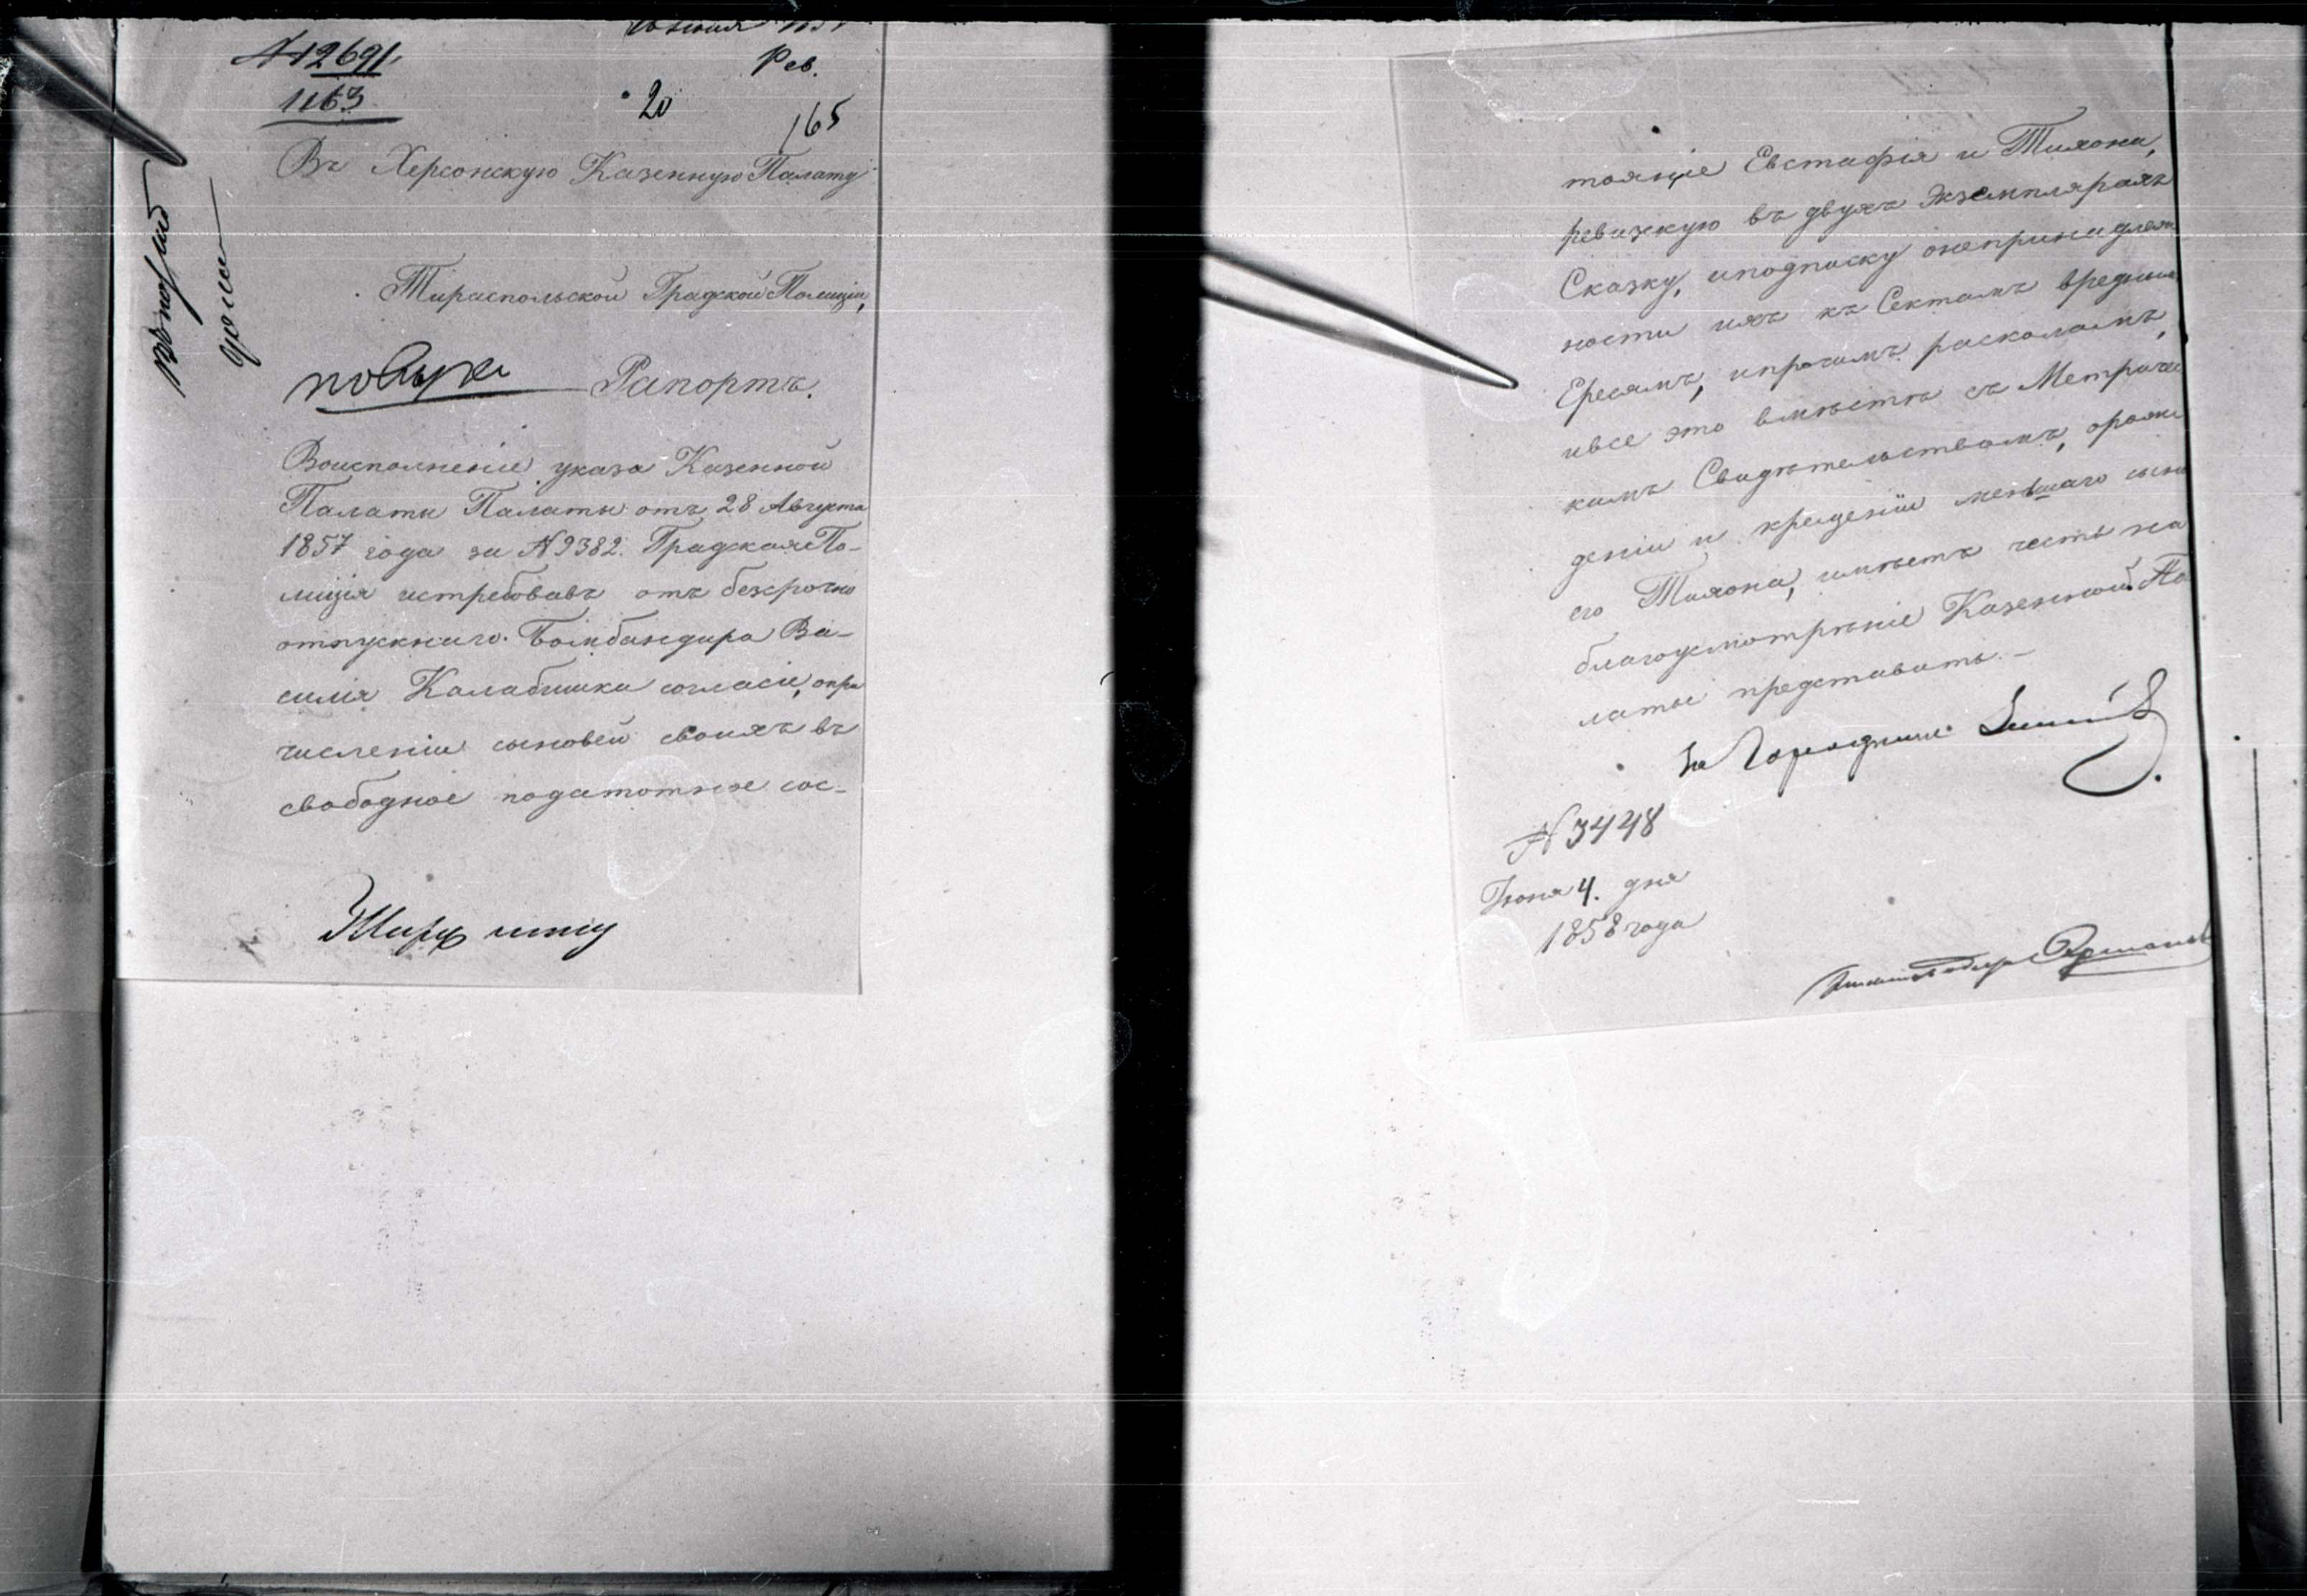 № 12691.
1163
Рев.
20
165
Въ Херсонскую Казенную Палату
Тираспольской Градской Полиціи,
Рапортъ.
Воисполненіе указа Казенной
Палаты Палаты отъ 28 Августа
1857 года за № 9382. Градская По-
лиція истребовавъ отъ безсрочно
отпускнаго Бомбандира Ва-
силія Калабишки согласіе, опри
численіи сыновей своихъ въ
свободное податотное сос-
тояніе Евстафія и Тихона,
ревизкую въ двухъ Экземплярахъ
Сказку, иподписку онепринадлеж
ности ихъ къ Сектамъ вреднымъ
Ересямъ, ипрочимъ расколамъ,
ивсе это вместѣ съ Метричес
кимъ Свидѣтельствомъ, орож
деніи и крещеніи меншаго сына
его Тихона, имѣетъ честь на
благоусмотрѣніе Казенной Па
латы представить.-
За Городничаго
№ 3448
Іюня 4. дня
1858 года